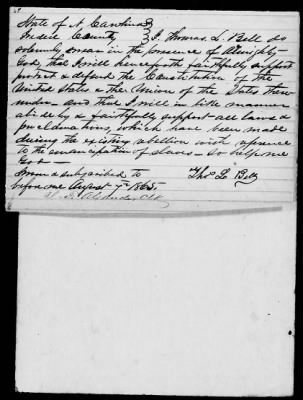 State of N. Carolina }
Iredell County } I Thomas L. Bell do
solemnly swear in the presence of Almighty
God, that I will henceforth faithfully support
protect & defend the Constitution of the
United States & the Union of the States there
under. and that I will in like manner
abide by & faithfully support all laws &
proclamations, which have been made
during the existing rebellion with reference
to the emancipation of slaves - So help me
God -
Sworn & subscribed to
before me August 7th 1865. Thos L Bell
Clk